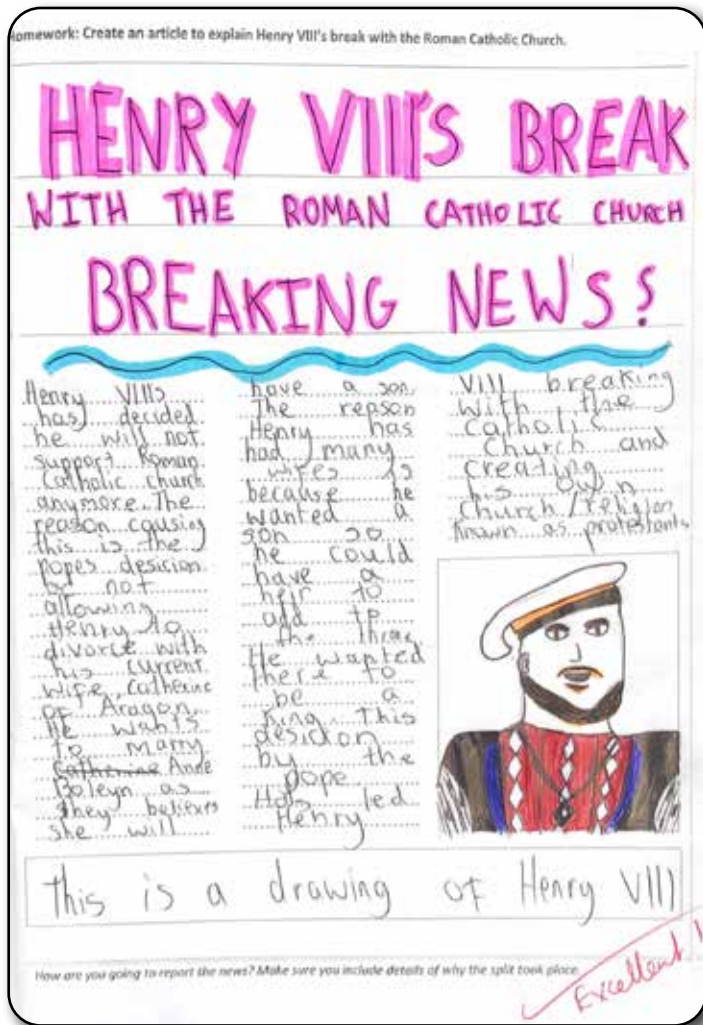 omework: Create an article to explain Henry VIII's break with the Roman Catholic Church.
HENRY VIII'S BREAK
WITH THE ROMAN CATHOLIC CHURCH
BREAKING NEWS!
Henry VIIIs
has decided
he will not
support Roman
Catholic church
anymore. The
reason causing
this is the
popes desicion
by not
allowing
Henry to
divorce with
his current
wife, Catherine
of Aragon.
He wants
to marry
Catherine Anne
Boleyn as
they believes
she will
have a son.
The reason
Henry has
had many
wifes is
because he
wanted a
son so
he could
have a
heir to
add to
the throne.
He wanted
there to
be a
King. This
desicion
by the
pope
Has led
Henry
VIII breaking
with the
Catholic
Church and
creating
his own
church/religion
known as protestants
This is a drawing of Henry VIII
How are you going to report the news? Make sure you include details of why the split took place.
Excellent!